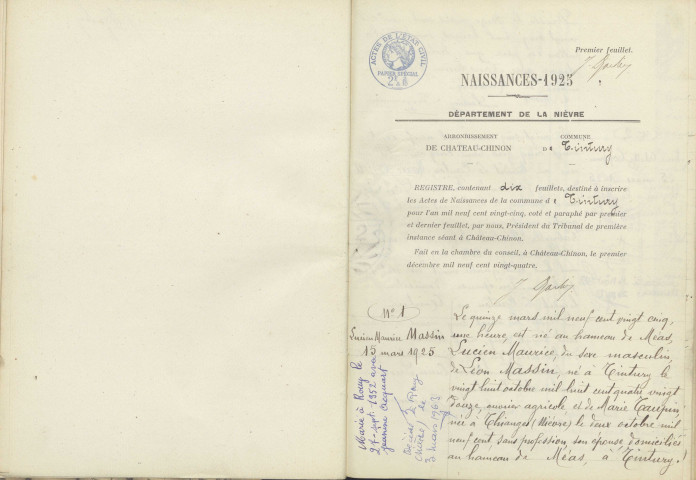 ACTES DE L'ÉTAT CIVIL
PAPIER SPÉCIAL
Premier feuillet.
NAISSANCES-1925
DÉPARTEMENT DE LA NIÈVRE
ARRONDISSEMENT
DE CHATEAU-CHINON
COMMUNE
De Tintury
REGISTRE, contenant dix feuillets, destiné à inscrire
les Actes de Naissances de la commune de Tintury
pour l'an mil neuf cent vingt-cinq, coté et paraphé par premier
et dernier feuillet, par nous, Président du Tribunal de première
instance séant à Château-Chinon.
Fait en la chambre du conseil, à Château-Chinon, le premier
décembre mil neuf cent vingt-quatre.
N° 1
Lucien Maurice Massin
15 mars 1925
Marié à
le
27 sept. 1952 avec
Jeannine Jacquart
Décédé à
le
3 mars 1963
Le quinze mars mil neuf cent vingt cinq,
une heure, est né au hameau de Méas,
Lucien Maurice, du sexe masculin,
de Léon Massin, né à Tintury le
vingt huit octobre mil huit cent quatre vingt
douze, ouvrier agricole, et de Marie Taupin
née à Thianges (Nièvre) le deux octobre mil
neuf cent, sans profession, son épouse, domiciliés
au hameau de Méas, à Tintury.